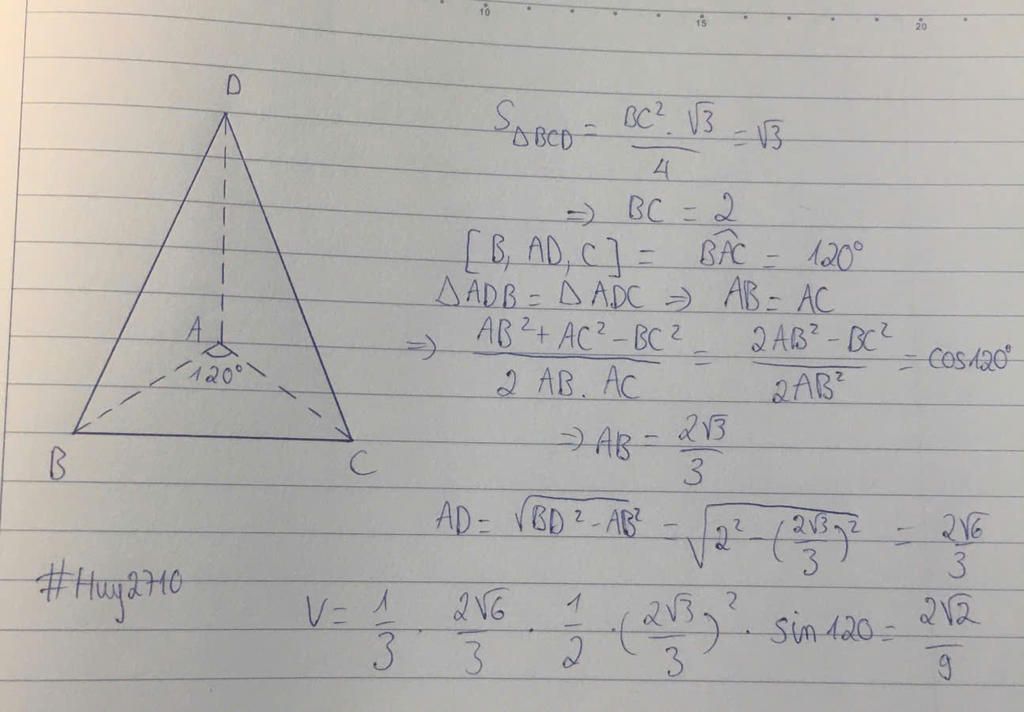 10 15 20
D
A
120°
B C
S△BCD = BC². √3 / 4 = √3
⇒ BC = 2
[B, AD, C] = B͡AC = 120°
△ADB = △ADC ⇒ AB = AC
⇒ AB² + AC² - BC² / 2 AB. AC = 2AB² - BC² / 2AB² = cos120°
⇒ AB = 2√3 / 3
AD = √(BD² - AB²) = √(2² - (2√3 / 3)²) = 2√6 / 3
#Huy2710
V = 1/3 . 2√6 / 3 . 1/2 . (2√3 / 3)² . sin120 = 2√2 / 9